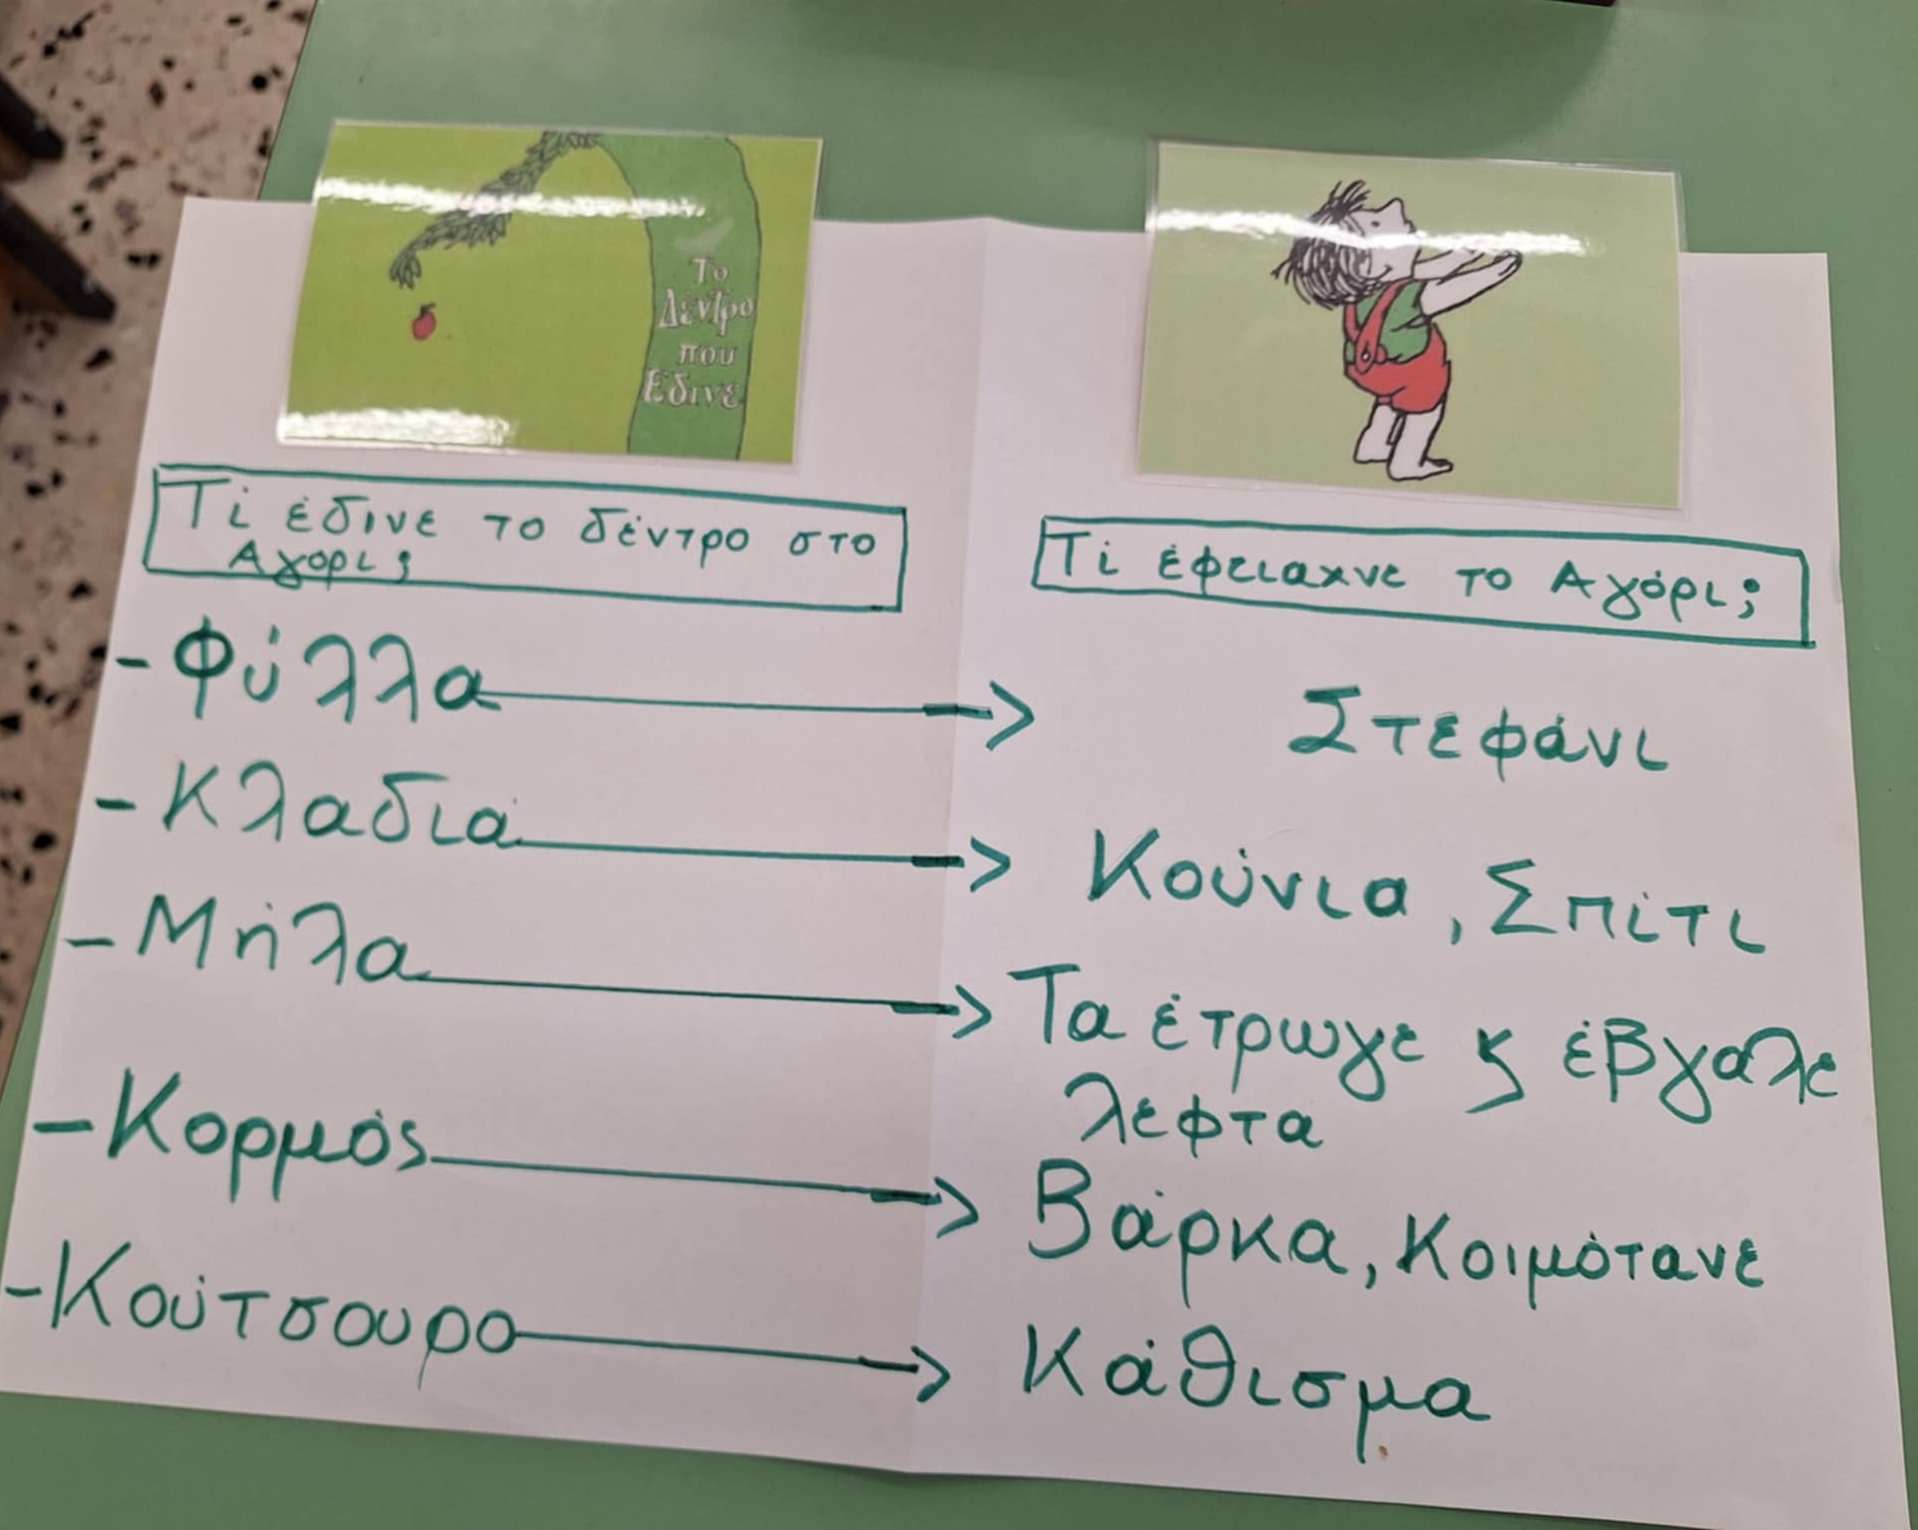 Το
Δέντρο
που
Έδινε
Τί έδινε το δέντρο στο
Αγόρι;
Τί έφειαχνε το Αγόρι;
- Φύλλα
Στεφάνι
- Κλαδιά
Κούνια, Σπίτι
- Μήλα
Τα έτρωγε ϗ έβγαλε
λεφτα
- Κορμός
Βάρκα, Κοιμότανε
- Κούτσουρο
Κάθισμα